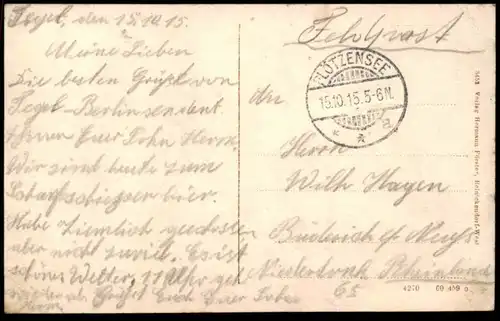 Tegel, den 15.10.15.
Meine Lieben
Die besten Grüße von
Tegel-Berlin sendent
Ihnen Euer Sohn Herm.
Wir sind heute zum
Scharfschießen hier.
Habe ziemlich geschossen
aber nicht zuviel. Es ist
schönes Wetter, 11 Uhr geht
wieder ab. Grüßt Euch Euer Sohn
Herm.
Feldpost
PLÖTZENSEE
15.10.15.5-6N.
* * a
An
Herrn
Wilh Hagen
Büderich b/ Neuß
Niederdonk Rheinland
65
Verlag Hermann Förster, Reinickendorf-West
4270 60 409 a.